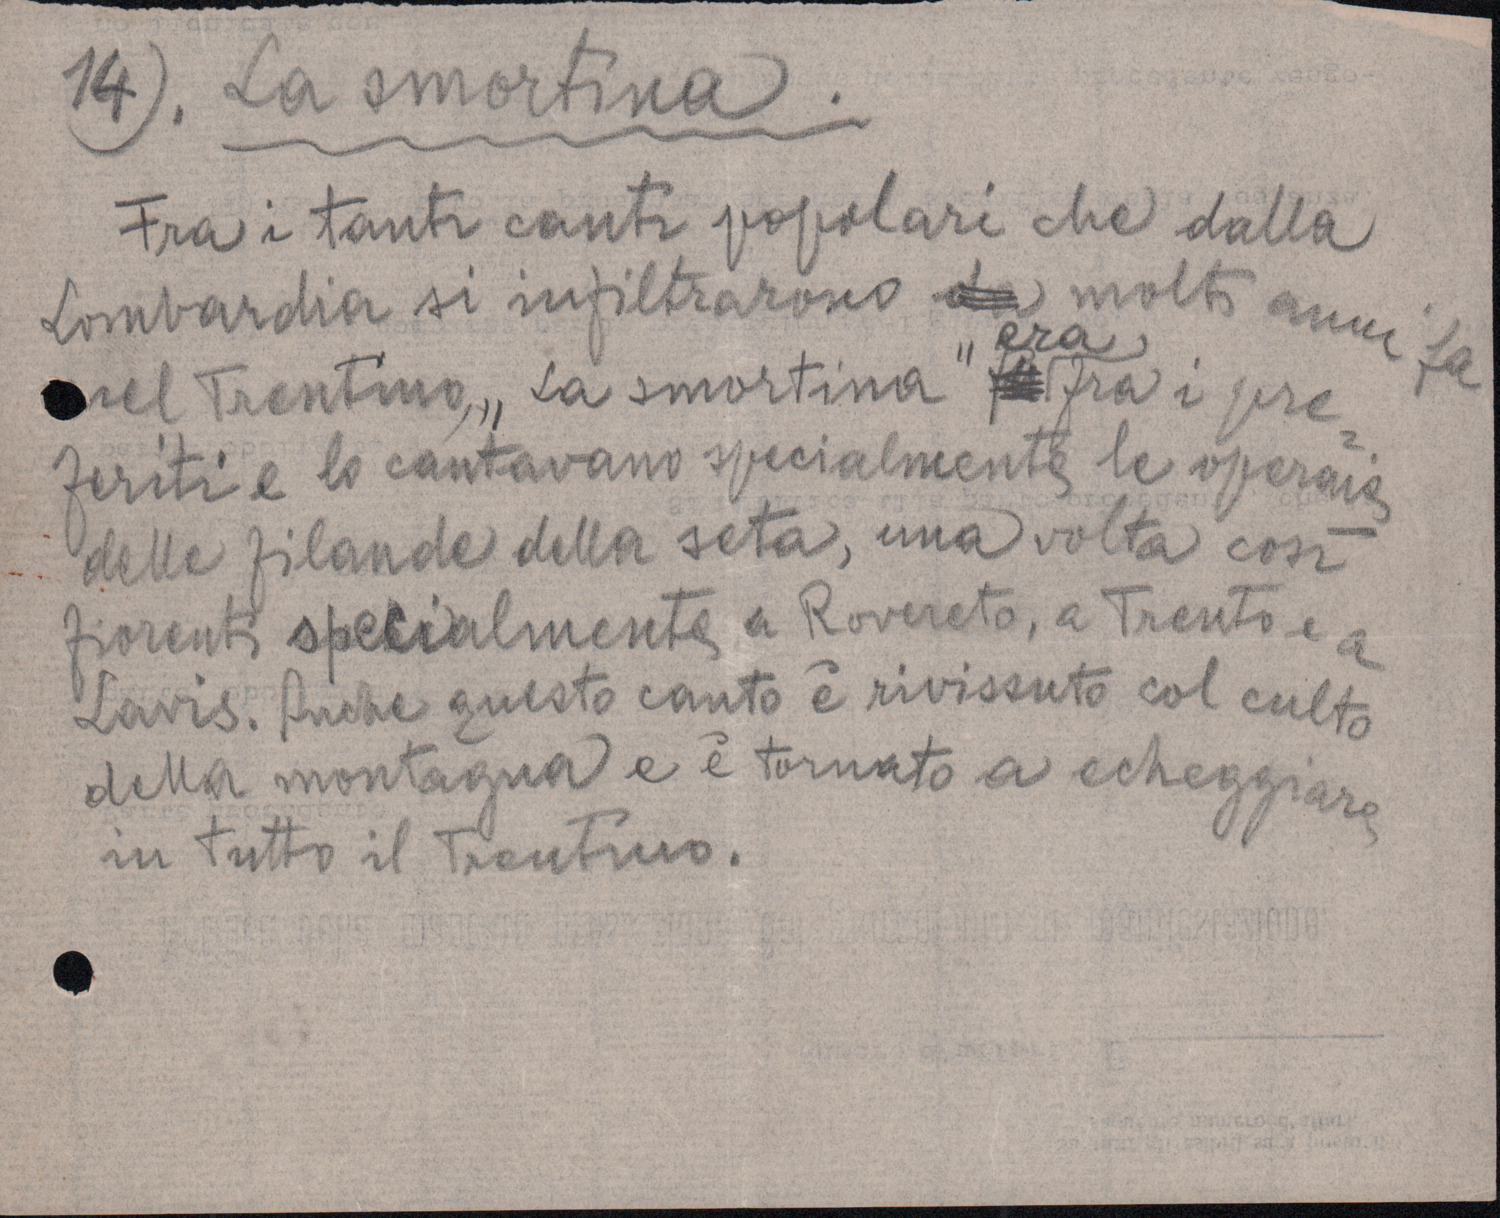 14). La smortina.
Fra i tanti canti popolari che dalla
Lombardia si infiltrarono molti anni fa
nel Trentino, „La smortina" era fra i pre=
feriti e lo cantavano specialmente le operaie
delle filande della seta, una volta così
fiorenti specialmente a Rovereto, a Trento e a
Lavis. Anche questo canto è rivissuto col culto
della montagna e è tornato a echeggiare
in tutto il Trentino.